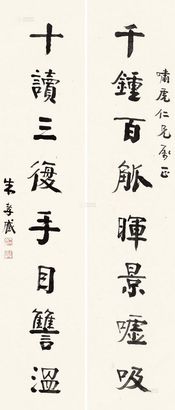 千鍾百觚暉景噓吸
嘯麓仁兄屬正
十讀三復手目讐溫
朱孝臧